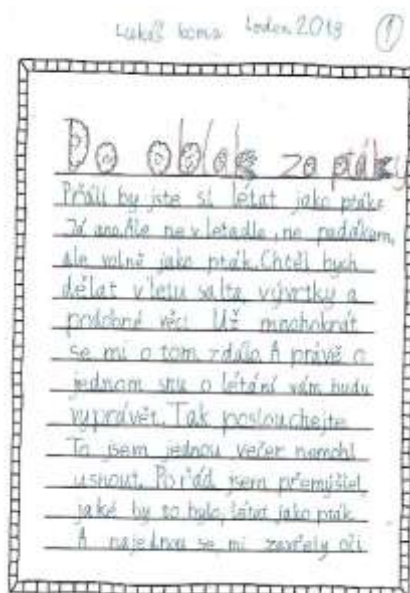 Lukáš Leden 2018 1
Do oblak za ptáky
Přáli by jste si létat jako ptáka
Já ano. Ale ne v letadle, ne padákem,
ale volně jako pták. Chtěl bych
dělat v letu salta, vývrtky a
podobné věci. Už mnohokrát
se mi o tom zdálo. A právě o
jednom snu o létání vám budu
vyprávět. Tak poslouchejte
To jsem jednou večer nemohl
usnout. Pořád jsem přemýšlel,
jaké by to bylo, létat jako pták.
A najednou se mi zavřely oči